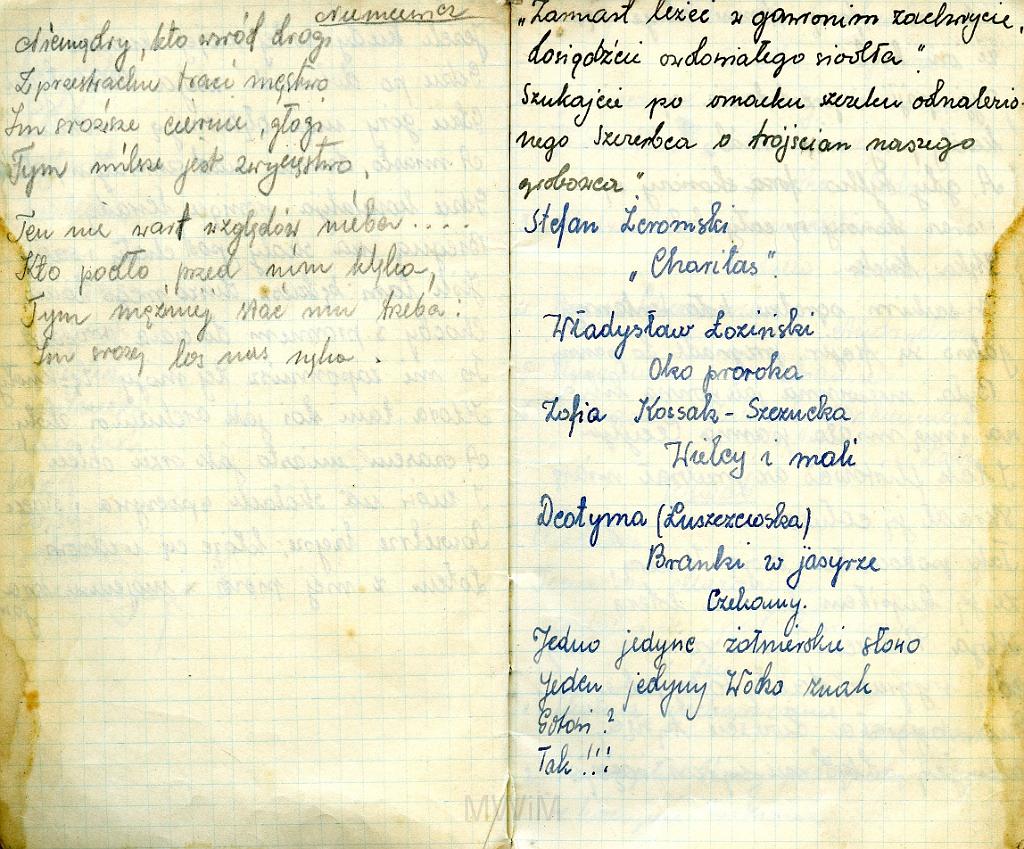 Niemcewicz
Niemądry, kto wśród drogi
Z przestrachu traci męstwo
Im sroższe ciernie, głogi
Tym milsze jest zwycięstwo.
Ten nie wart względów nieba . . . .
Kto podło przed nim klęka,
Tym mężniej stać mu trzeba:
Im srożej los nas nęka.
„Zamiast leżeć w gawronim zachwycie,
dosiądźcie owdowiałego siodła"
Szukajcie po omacku szczeku odnalezio-
nego Szczerbca o trójścian naszego
grobowca"
Stefan Żeromski
„Charitas".
Władysław Łoziński
Oko proroka
Zofia Kossak-Szczucka
Wielcy i mali
Deotyma (Łuszczewska)
Branki w jasyrze
Czekamy.
Jedno jedyne żołnierskie słowo
Jeden jedyny Wodza znak
Gotowi?
Tak!!!
MWiM